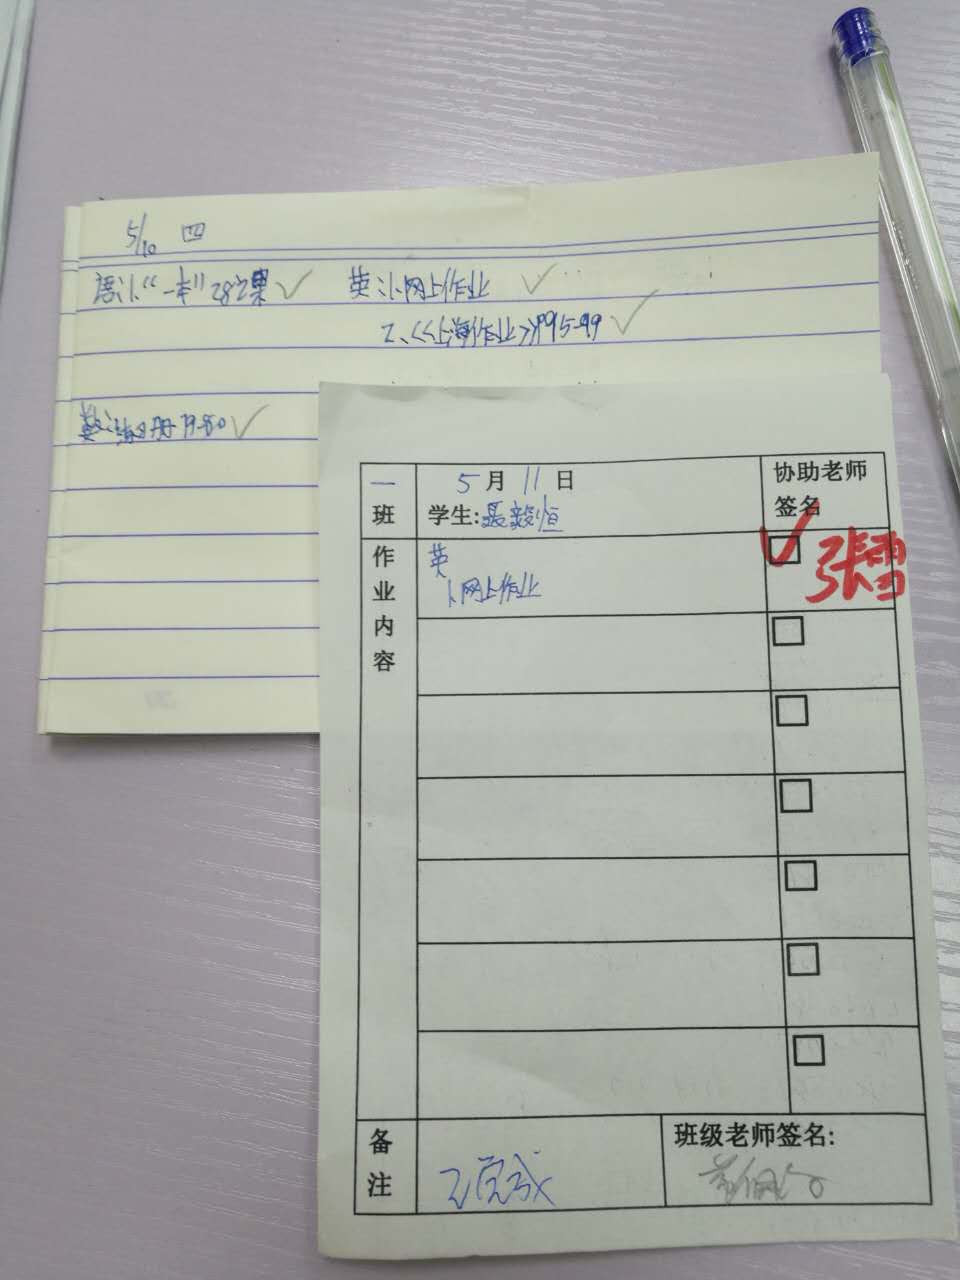 5/10 四
语:1、"一本"28课 ✓
英:1、网上作业 ✓
2、《上海作业》P95-99 ✓
数:练习册79-80 ✓
一班
5月11日
学生:聂毅恒
协助老师签名
作业内容
英
1、网上作业
✓ 张雪
备注
已完成
班级老师签名: